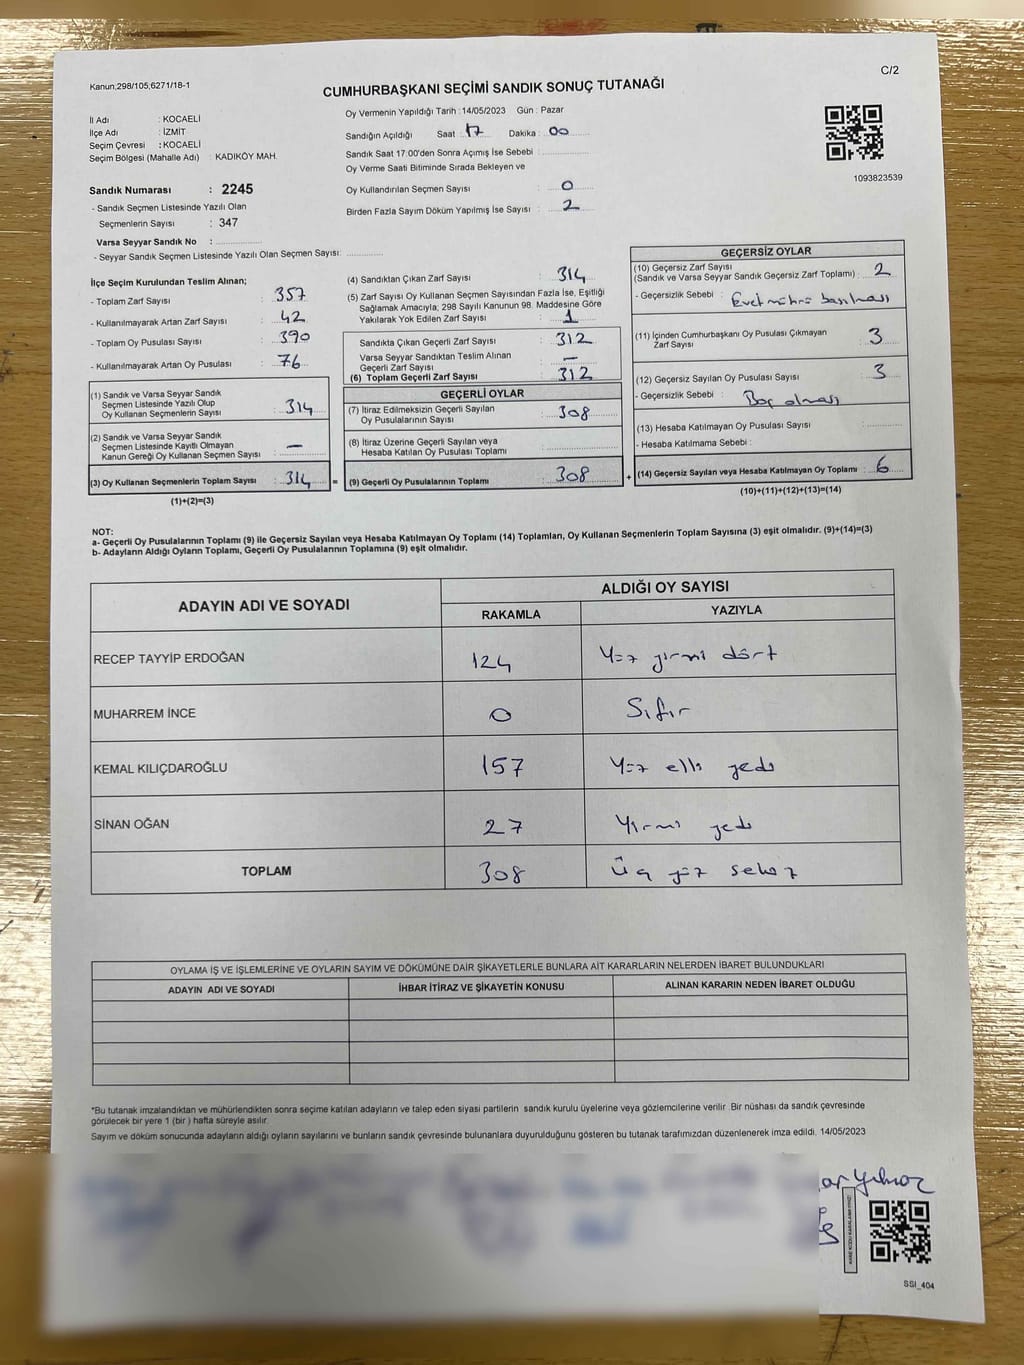 C/2
Kanun;298/105;6271/18-1
CUMHURBAŞKANI SEÇİMİ SANDIK SONUÇ TUTANAĞI
İl Adı : KOCAELİ
İlçe Adı : İZMİT
Seçim Çevresi : KOCAELİ
Seçim Bölgesi (Mahalle Adı) : KADIKÖY MAH.
Sandık Numarası : 2245
- Sandık Seçmen Listesinde Yazılı Olan
Seçmenlerin Sayısı : 347
Varsa Seyyar Sandık No :
- Seyyar Sandık Seçmen Listesinde Yazılı Olan Seçmen Sayısı:
Oy Vermenin Yapıldığı Tarih : 14/05/2023 Gün : Pazar
Sandığın Açıldığı Saat : 17 Dakika : 00
Sandık Saat 17:00'den Sonra Açımış İse Sebebi :
Oy Verme Saati Bitiminde Sırada Bekleyen ve
Oy Kullandırılan Seçmen Sayısı : 0
Birden Fazla Sayım Döküm Yapılmış İse Sayısı : 2
1093823539
İlçe Seçim Kurulundan Teslim Alınan;
- Toplam Zarf Sayısı : 357
- Kullanılmayarak Artan Zarf Sayısı : 42
- Toplam Oy Pusulası Sayısı : 390
- Kullanılmayarak Artan Oy Pusulası : 76
(1) Sandık ve Varsa Seyyar Sandık
Seçmen Listesinde Yazılı Olup
Oy Kullanan Seçmenlerin Sayısı : 314
(2) Sandık ve Varsa Seyyar Sandık
Seçmen Listesinde Kayıtlı Olmayan
Kanun Gereği Oy Kullanan Seçmen Sayısı : —
(3) Oy Kullanan Seçmenlerin Toplam Sayısı : 314 =
(1)+(2)=(3)
(4) Sandıktan Çıkan Zarf Sayısı : 314
(5) Zarf Sayısı Oy Kullanan Seçmen Sayısından Fazla İse, Eşitliği
Sağlamak Amacıyla; 298 Sayılı Kanunun 98. Maddesine Göre
Yakılarak Yok Edilen Zarf Sayısı : 1
Sandıkta Çıkan Geçerli Zarf Sayısı : 312
Varsa Seyyar Sandıktan Teslim Alınan
Geçerli Zarf Sayısı : —
(6) Toplam Geçerli Zarf Sayısı : 312
GEÇERLİ OYLAR
(7) İtiraz Edilmeksizin Geçerli Sayılan
Oy Pusulalarının Sayısı : 308
(8) İtiraz Üzerine Geçerli Sayılan veya
Hesaba Katılan Oy Pusulası Toplamı :
(9) Geçerli Oy Pusulalarının Toplamı : 308 +
GEÇERSİZ OYLAR
(10) Geçersiz Zarf Sayısı
(Sandık ve Varsa Seyyar Sandık Geçersiz Zarf Toplamı) : 2
- Geçersizlik Sebebi : Evet mührü basılması
(11) İçinden Cumhurbaşkanı Oy Pusulası Çıkmayan
Zarf Sayısı : 3
(12) Geçersiz Sayılan Oy Pusulası Sayısı : 3
- Geçersizlik Sebebi : Boş olması
(13) Hesaba Katılmayan Oy Pusulası Sayısı :
- Hesaba Katılmama Sebebi :
(14) Geçersiz Sayılan veya Hesaba Katılmayan Oy Toplamı : 6
(10)+(11)+(12)+(13)=(14)
NOT:
a- Geçerli Oy Pusulalarının Toplamı (9) ile Geçersiz Sayılan veya Hesaba Katılmayan Oy Toplamı (14) Toplamları, Oy Kullanan Seçmenlerin Toplam Sayısına (3) eşit olmalıdır. (9)+(14)=(3)
b- Adayların Aldığı Oyların Toplamı, Geçerli Oy Pusulalarının Toplamına (9) eşit olmalıdır.
ADAYIN ADI VE SOYADI ALDIĞI OY SAYISI
RAKAMLA YAZIYLA
RECEP TAYYİP ERDOĞAN 124 Yüz yirmi dört
MUHARREM İNCE 0 Sıfır
KEMAL KILIÇDAROĞLU 157 Yüz elli yedi
SİNAN OĞAN 27 Yirmi yedi
TOPLAM 308 Üç yüz sekiz
OYLAMA İŞ VE İŞLEMLERİNE VE OYLARIN SAYIM VE DÖKÜMÜNE DAİR ŞİKAYETLERLE BUNLARA AİT KARARLARIN NELERDEN İBARET BULUNDUKLARI
ADAYIN ADI VE SOYADI İHBAR İTİRAZ VE ŞİKAYETİN KONUSU ALINAN KARARIN NEDEN İBARET OLDUĞU
"Bu tutanak imzalandıktan ve mühürlendikten sonra seçime katılan adayların ve talep eden siyasi partilerin sandık kurulu üyelerine veya gözlemcilerine verilir. Bir nüshası da sandık çevresinde
görülecek bir yere 1 (bir ) hafta süreyle asılır.
Sayım ve döküm sonucunda adayların aldığı oyların sayılarını ve bunların sandık çevresinde bulunanlara duyurulduğunu gösteren bu tutanak tarafımızdan düzenlenerek imza edildi. 14/05/2023
ar Yılmaz
SSI_404